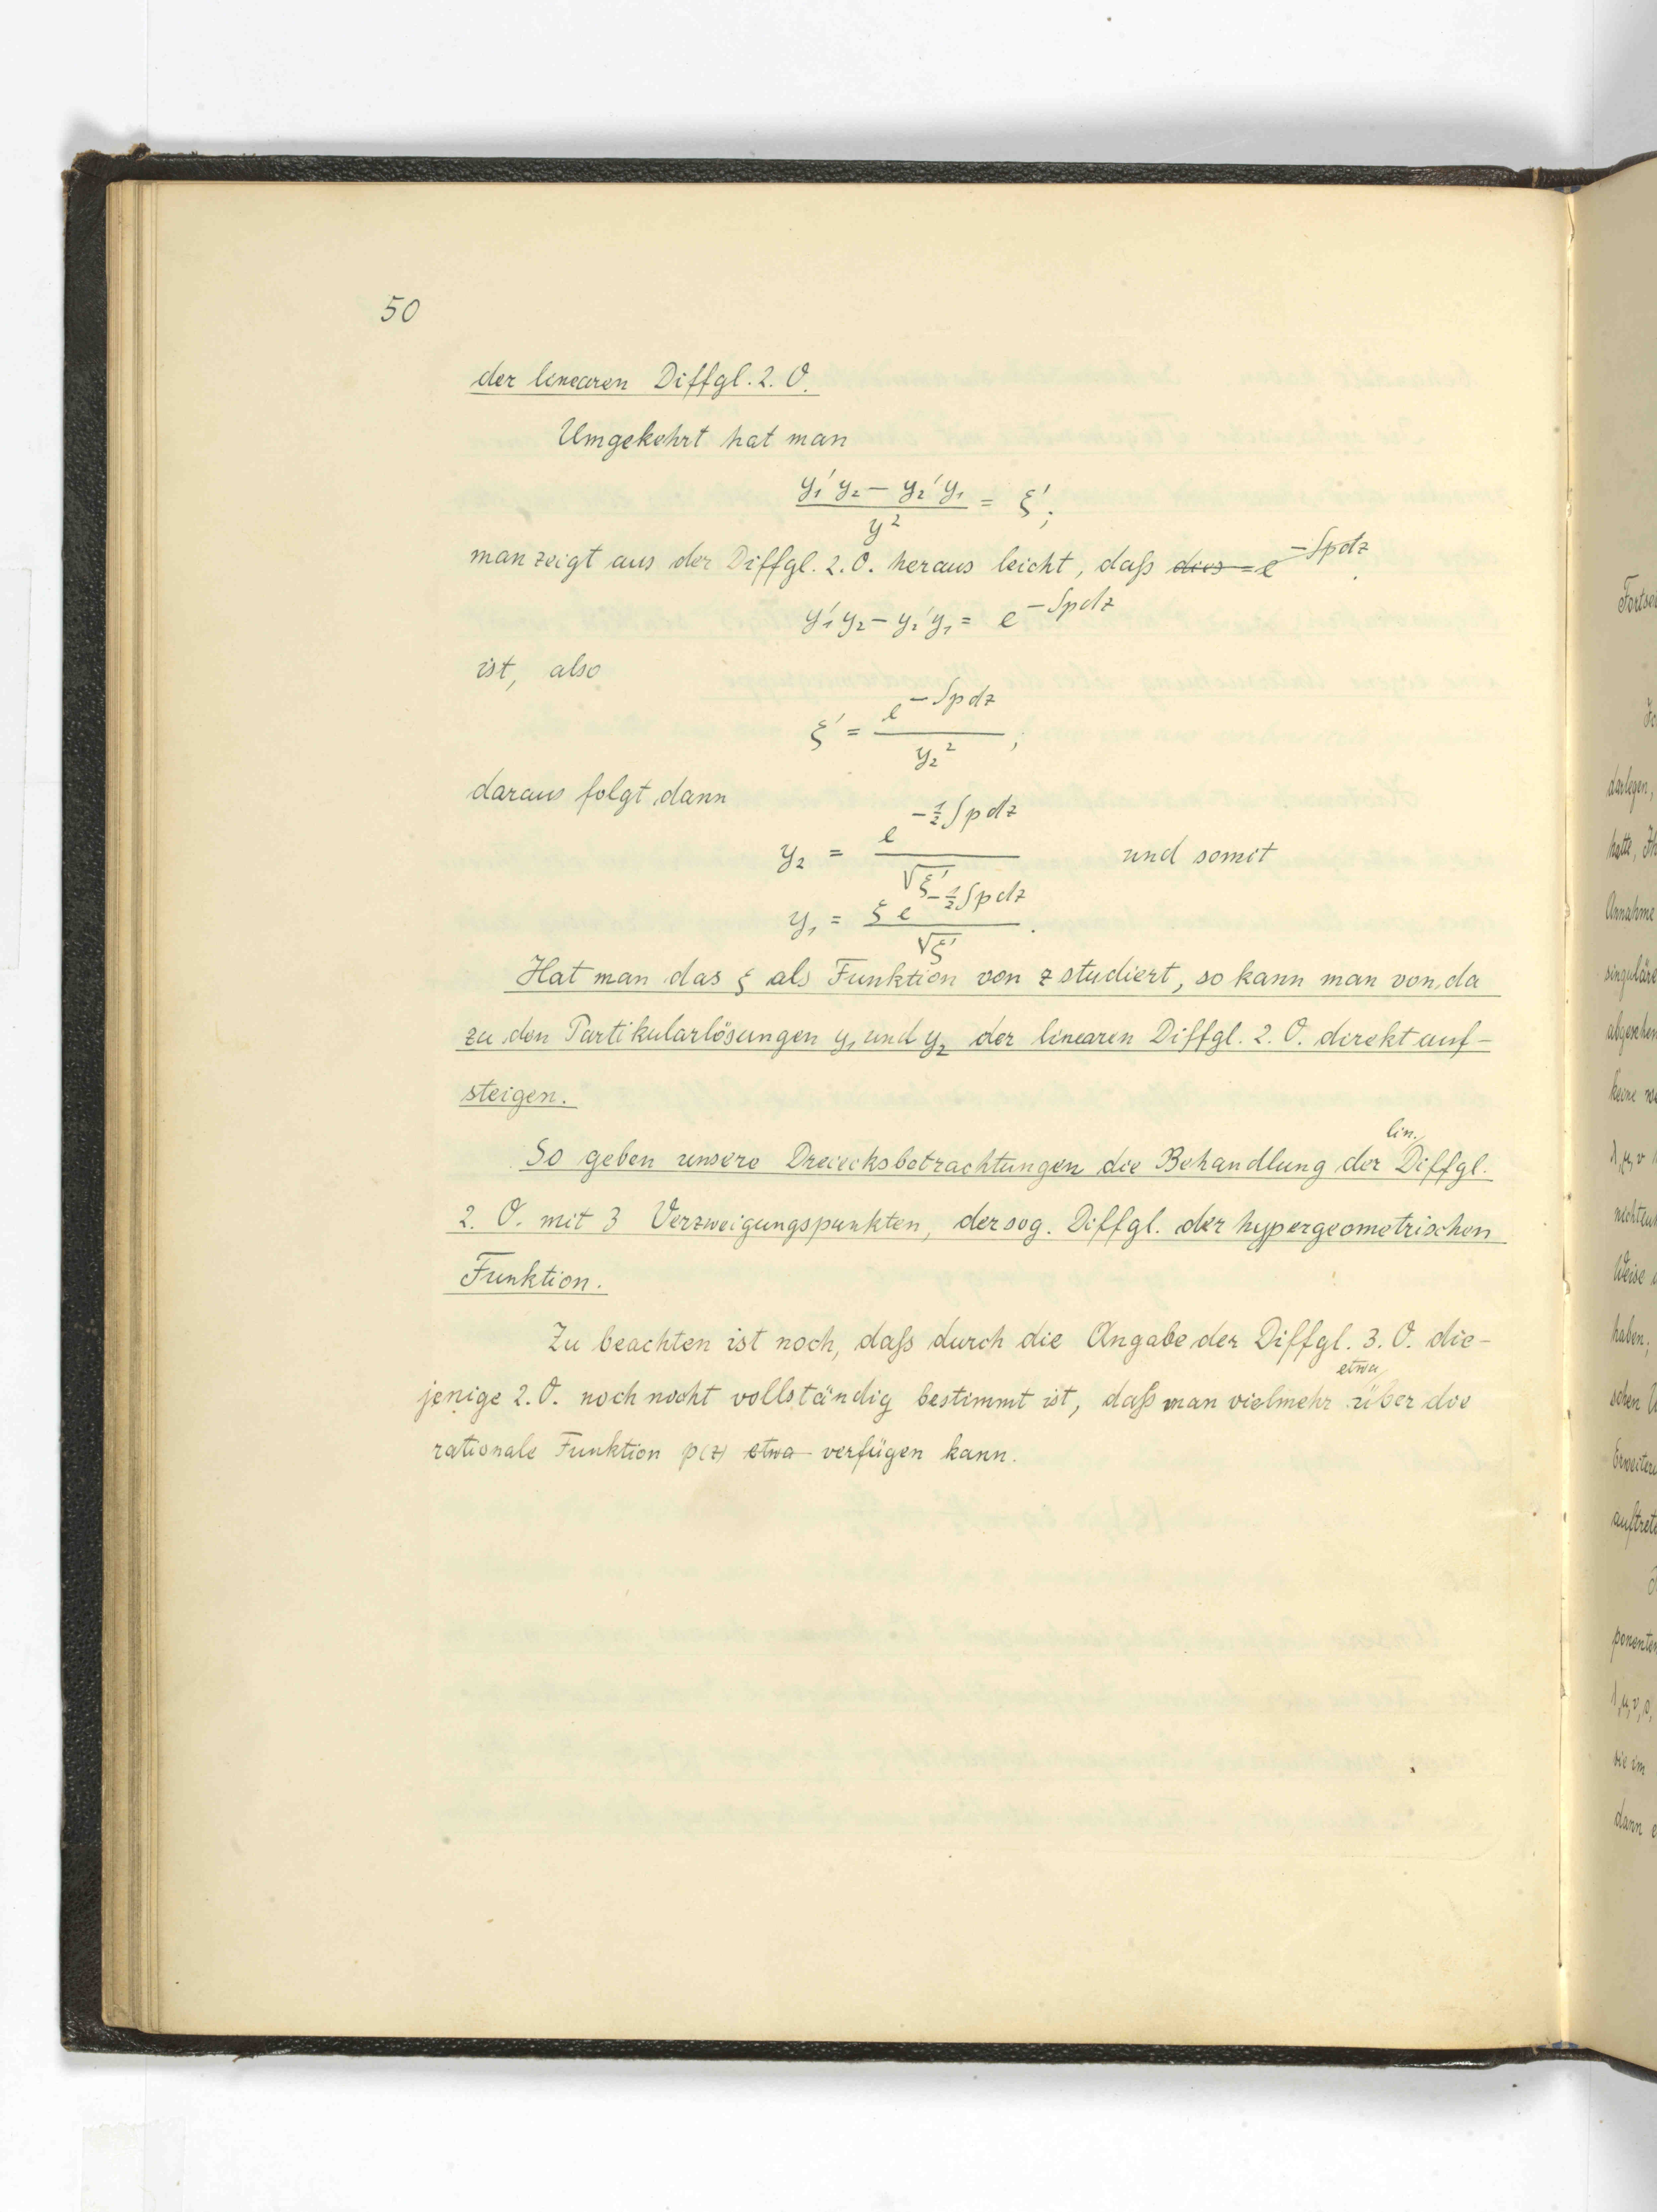 50
der linearen Diffgl. 2. O.
Umgekehrt hat man
(y₁′y₂ − y₂′y₁)/y² = ξ′;
man zeigt aus der Diffgl. 2. O. heraus leicht, daß ~~dies = e^(−∫pdz)~~.
y₁′y₂ − y₂′y₁ = e^(−∫pdz)
ist, also
ξ′ = e^(−∫pdz)/y₂²;
daraus folgt dann
y₂ = e^(−½∫pdz)/√ξ′ und somit
y₁ = ξ e^(−½∫pdz)/√ξ′.
Hat man das ξ als Funktion von z studiert, so kann man von da
zu den Partikularlösungen y₁ und y₂ der linearen Diffgl. 2. O. direkt auf-
steigen.
So geben unsere Dreiecksbetrachtungen die Behandlung der lin. Diffgl.
2. O. mit 3 Verzweigungspunkten, der sog. Diffgl. der hypergeometrischen
Funktion.
Zu beachten ist noch, daß durch die Angabe der Diffgl. 3. O. die-
jenige 2. O. noch nicht vollständig bestimmt ist, daß man vielmehr etwa über die
rationale Funktion p(z) ~~etwa~~ verfügen kann.
darlegen,
hatte,
Annahme
haben;